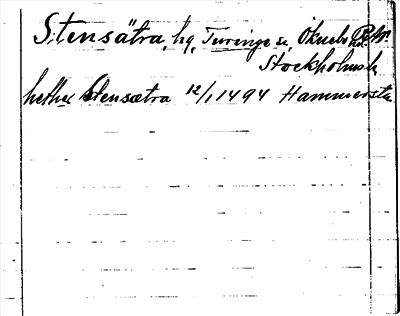 Stensätra, hg, Turinge sn, Öknebo
Stockholms l.
hether Stensætra 12/1 1494 Hammersta